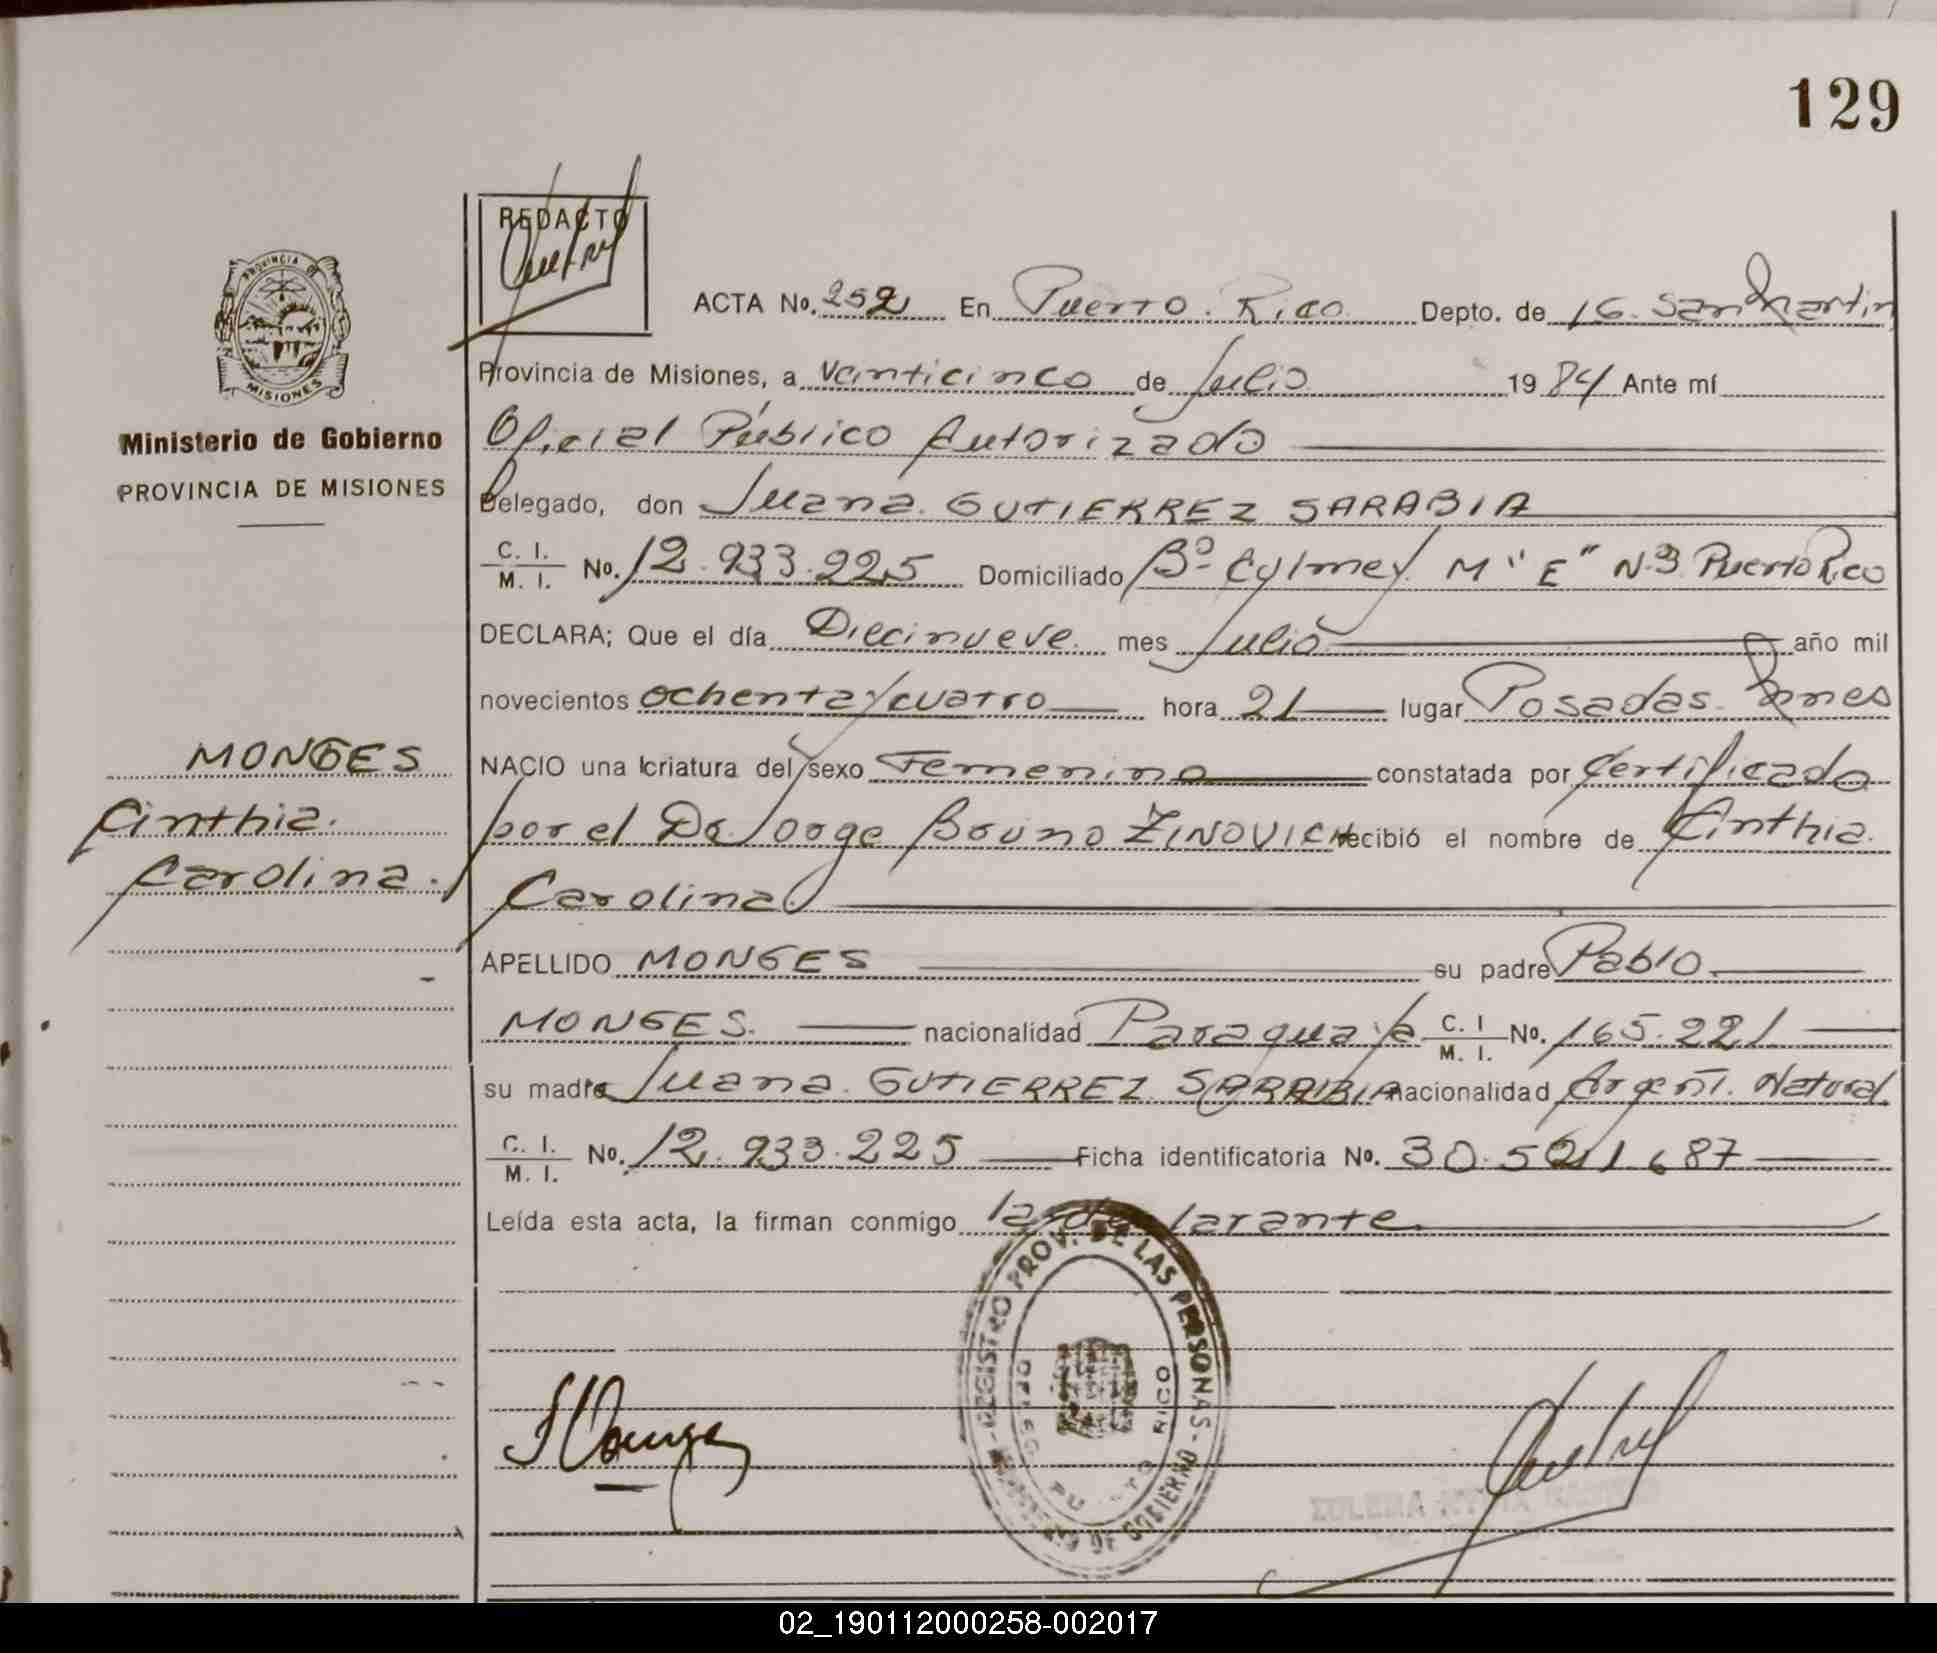 129
REDACTO
PROVINCIA DE
MISIONES
Ministerio de Gobierno
PROVINCIA DE MISIONES
ACTA No. 252 En Puerto Rico Depto. de 16. San Martin
Provincia de Misiones, a Vainticinco de Julio 1984 Ante mí
Oficial Público Autorizado
Delegado, don Juana. GUTIERREZ SARABIA
C. I. M. I. No. 12.933.225 Domiciliado Bº Cylmey M "E" N.3 Puerto Rico
DECLARA; Que el día Diecinueve mes Julio año mil
novecientos ochenta y cuatro hora 21 lugar Posadas. Mnes
NACIO una criatura del sexo Femenino constatada por Certificado
por el Dr. Jorge Bruno ZINOVICH recibió el nombre de Cinthia.
Carolina
APELLIDO MONGES su padre Pablo
MONGES. nacionalidad Paraguaya C. I M. I. No. 165.221
su madre Juana. GUTIERREZ SARABIA nacionalidad Argent. Natural.
C. I. M. I. No. 12.933.225 Ficha identificatoria No. 30.521.687
Leída esta acta, la firman conmigo la declarante
MONGES
Cinthia.
Carolina.
REGISTRO PROV. DE LAS PERSONAS - MINISTERIO DE GOBIERNO -
RICO
02_190112000258-002017